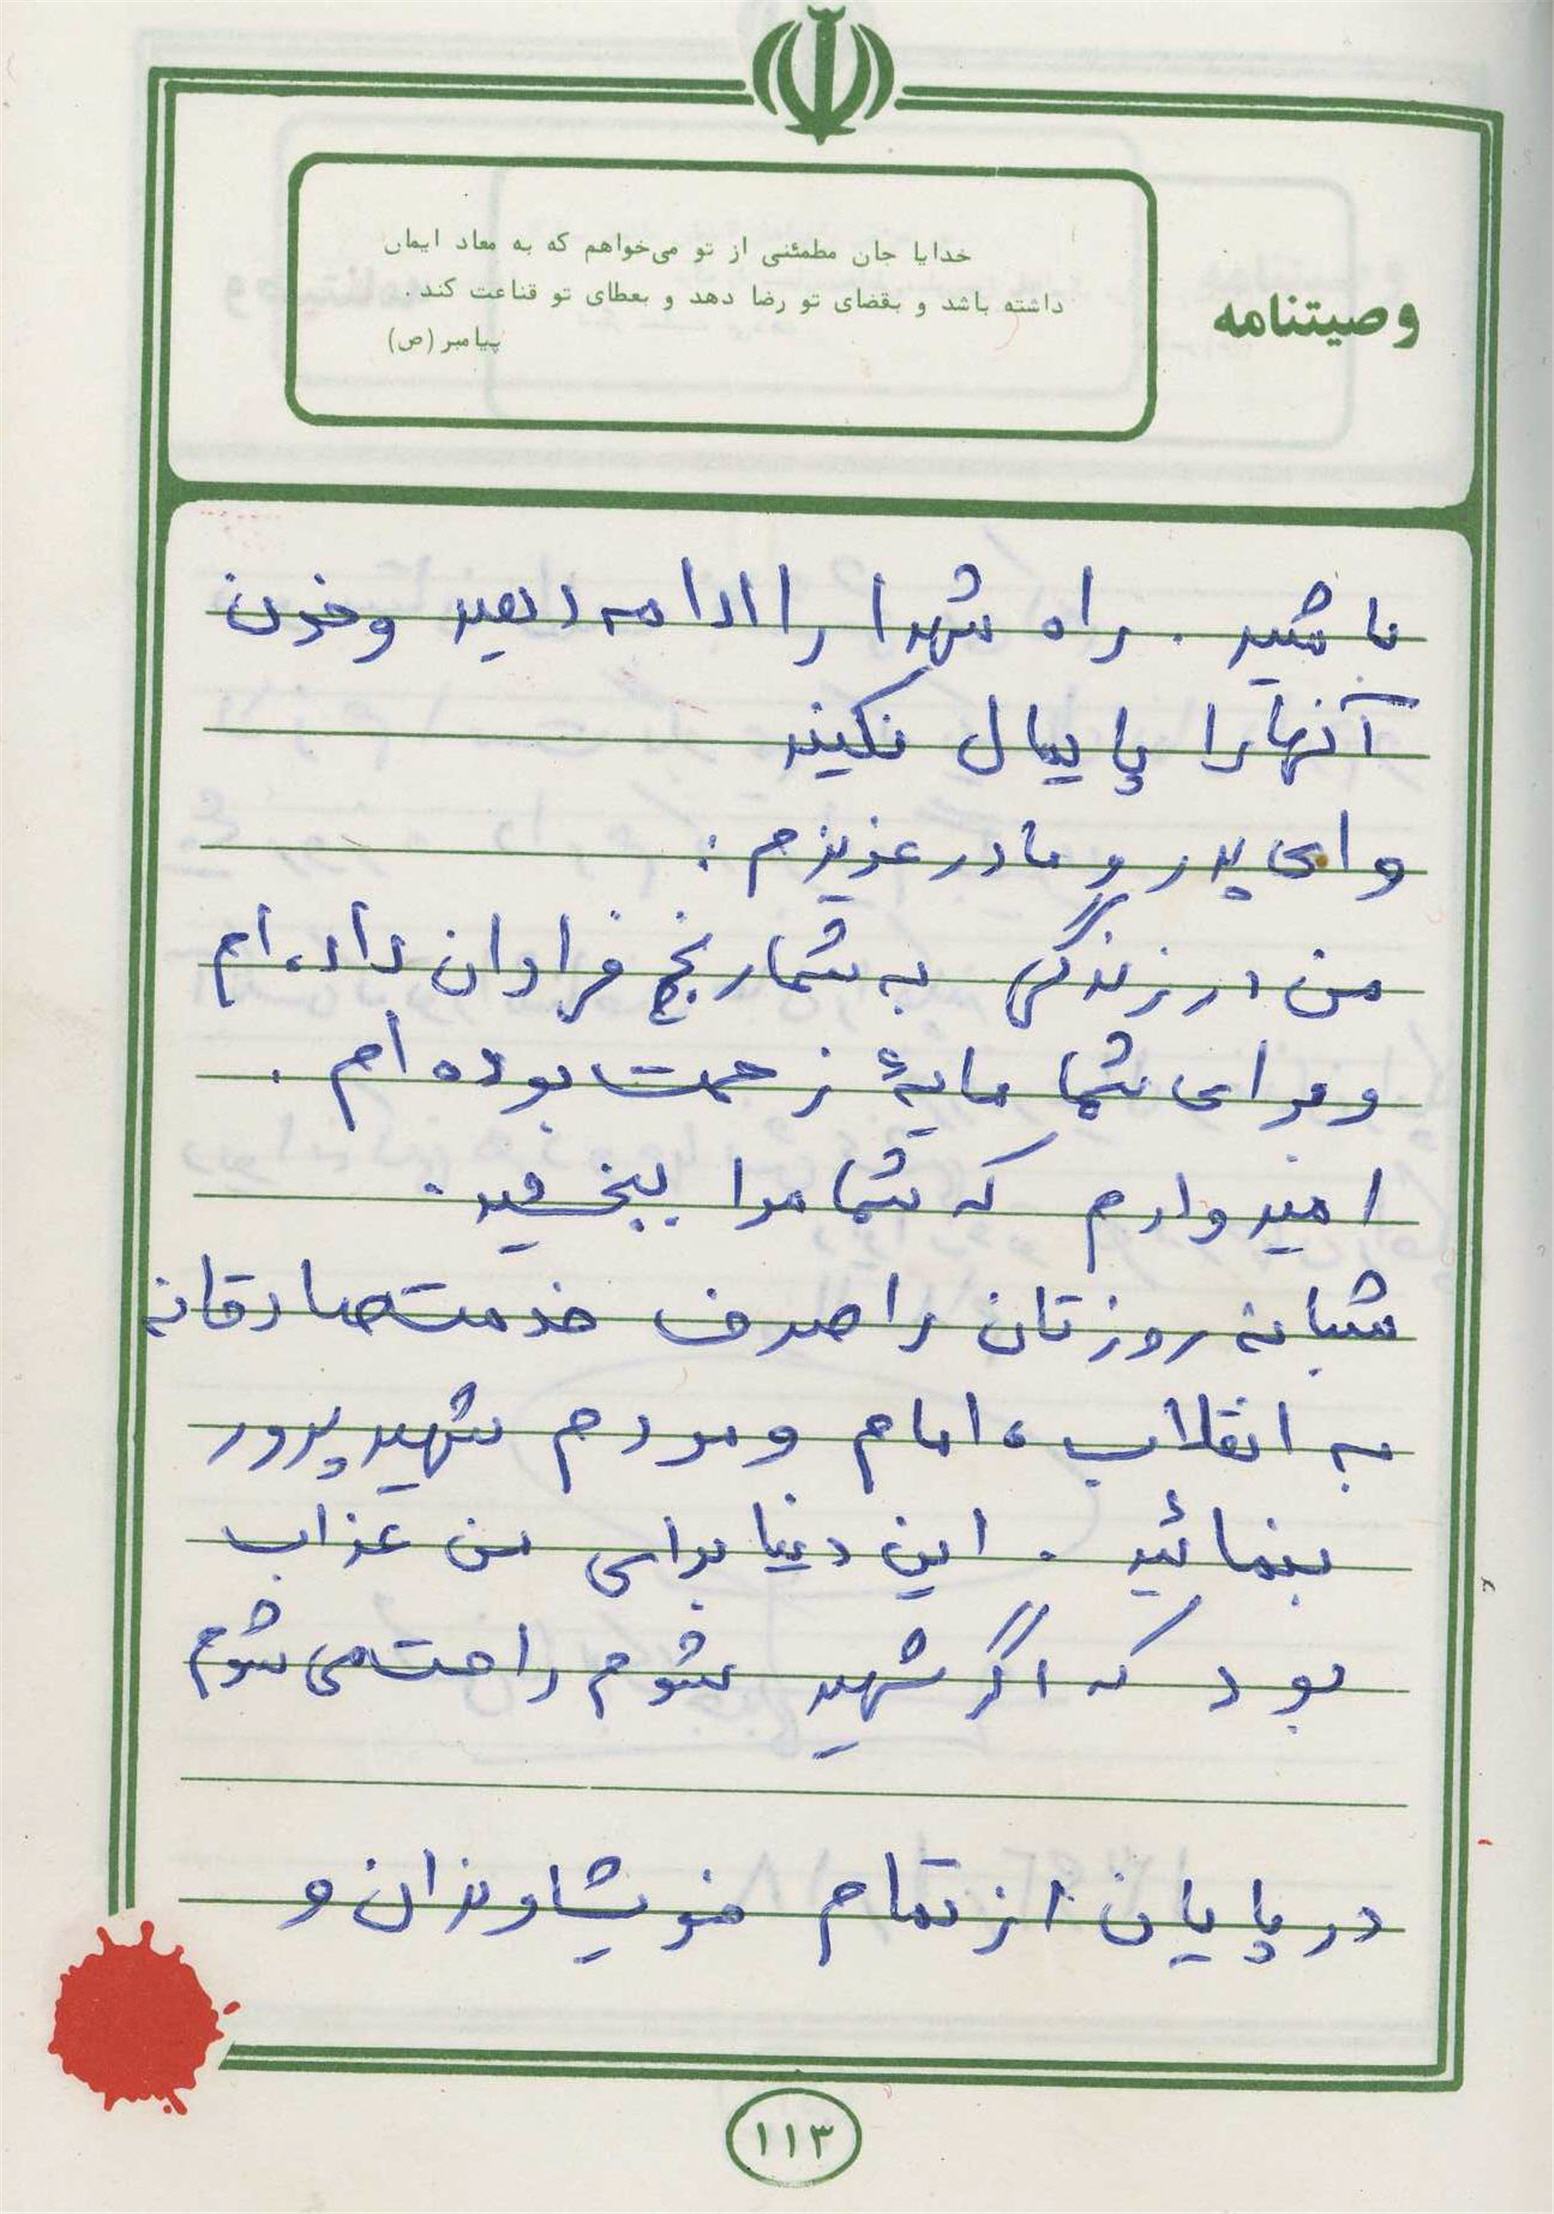 خدایا جان مطمئنی از تو می‌خواهم که به معاد ایمان
داشته باشد و بقضای تو رضا دهد و بعطای تو قناعت کند.
پیامبر (ص)
وصیتنامه
باشید. راه شهدا را ادامه دهید و خون
آنها را پایمال نکنید
و ای پدر و مادر عزیزم:
من در زندگی به شما رنج فراوان داده‌ام
و برای شما مایهٔ زحمت بوده‌ام.
امیدوارم که شما مرا ببخشید.
شبانه روزتان را صرف خدمت صادقانه
به انقلاب، امام و مردم شهید پرور
بنمائید. این دنیا برای من عذاب
بود که اگر شهید بشوم راحت می‌شوم
در پایان از تمام خویشاوندان و
۱۱۳